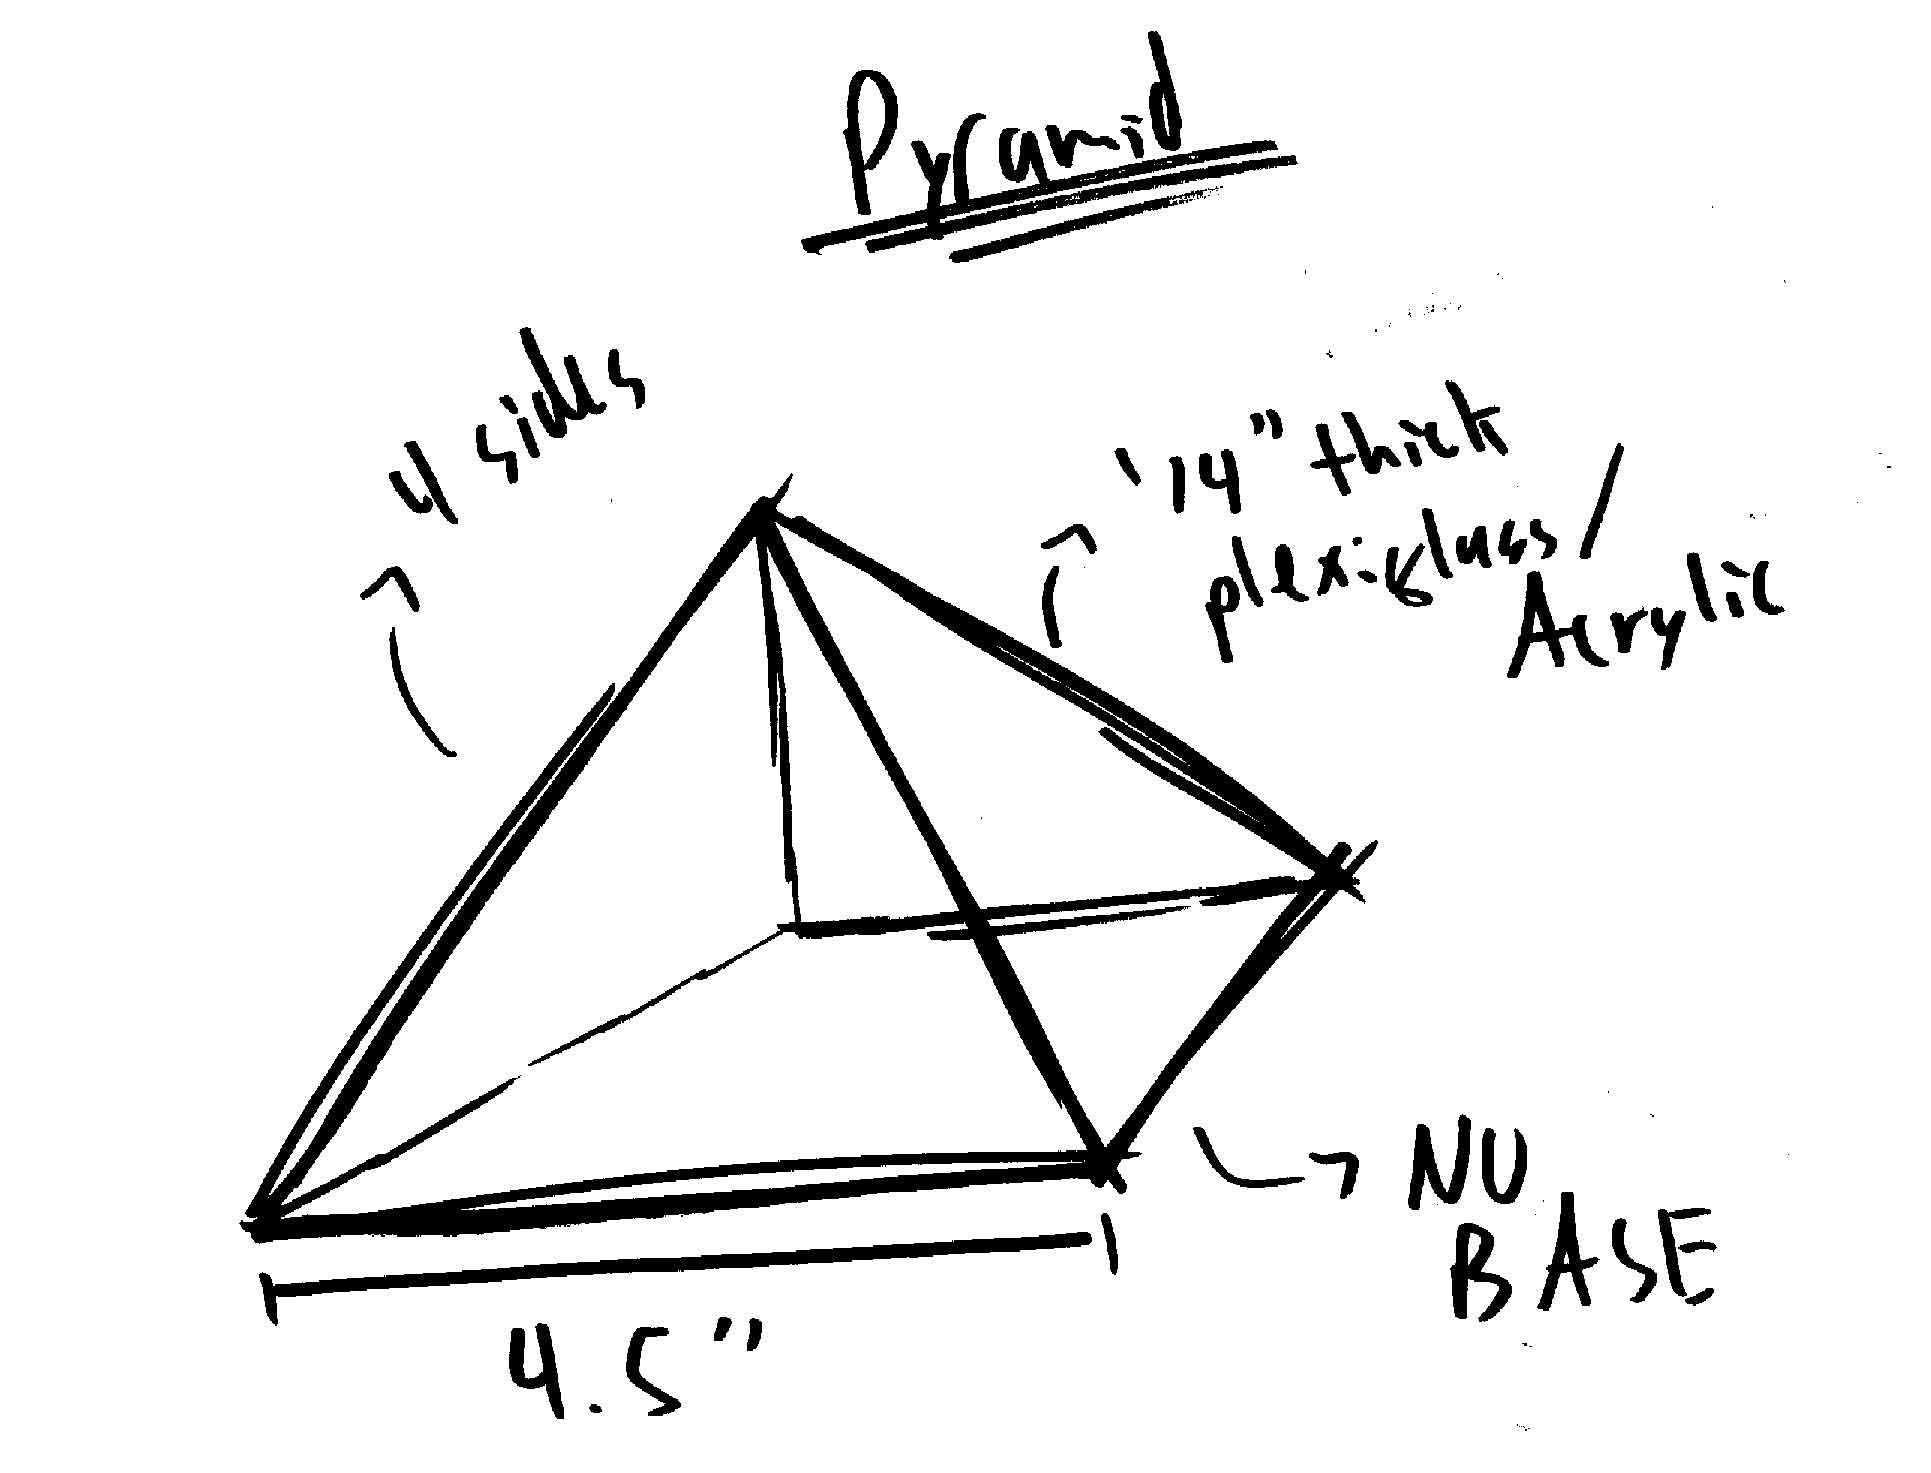 Pyramid
4 sides
'14" thick
plexiglass/
Acrylic
NO
BASE
4.5"